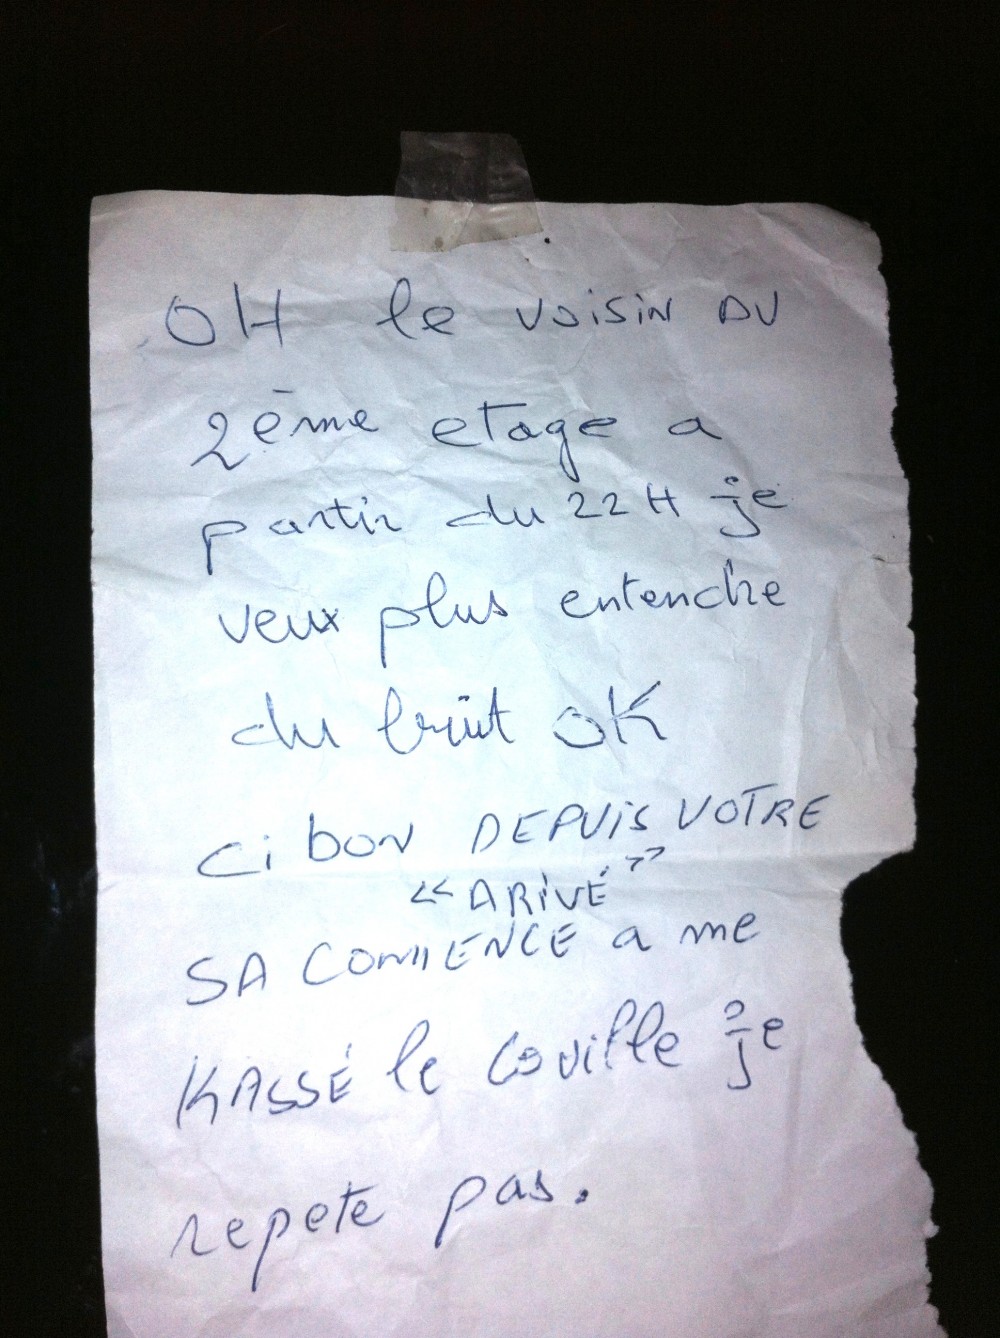 OH le voisin DU
2ème etage a
partir du 22H je
veux plus entendre
du bruit OK
Ci bon DEPUIS VOTRE
<< ARIVÉ >>
SA COMMENCE a me
KASSÉ le couille je
repete pas.